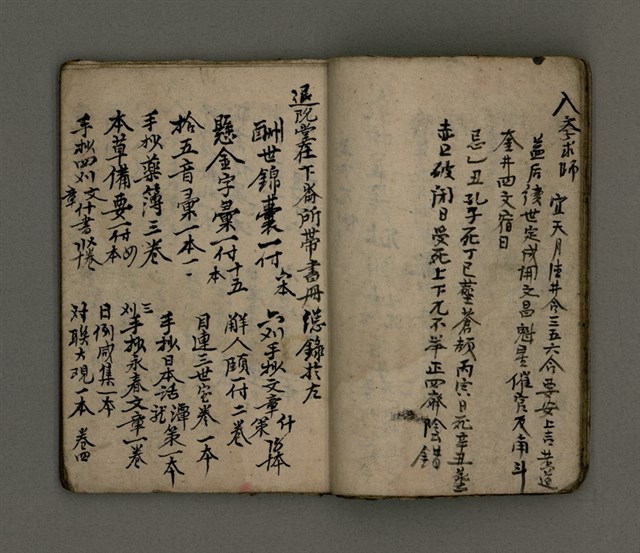 入學求師 宜天月德并合三五六合要安上吉
益后續世定成開文昌魁星催官及南斗
奎井四文宿日
忌丁丑孔子死丁巳葬蒼頡丙寅日死辛丑葬
赤口破閉日受死上下兀不舉正四廢陰錯
退院堂在下齋所帶書冊總錄於左
酬世錦囊一付六本
懸金字彙一付十五本
拾五音彙一本
手抄藥簿三卷
本草備要一付四本
手抄四刈文付書
六刈手抄文章什
解人頤一付二卷
目連三世宝卷一本
手抄日本話一本
三刈手抄永春文章一卷
日例咸集一本
對聯大觀一本 卷四